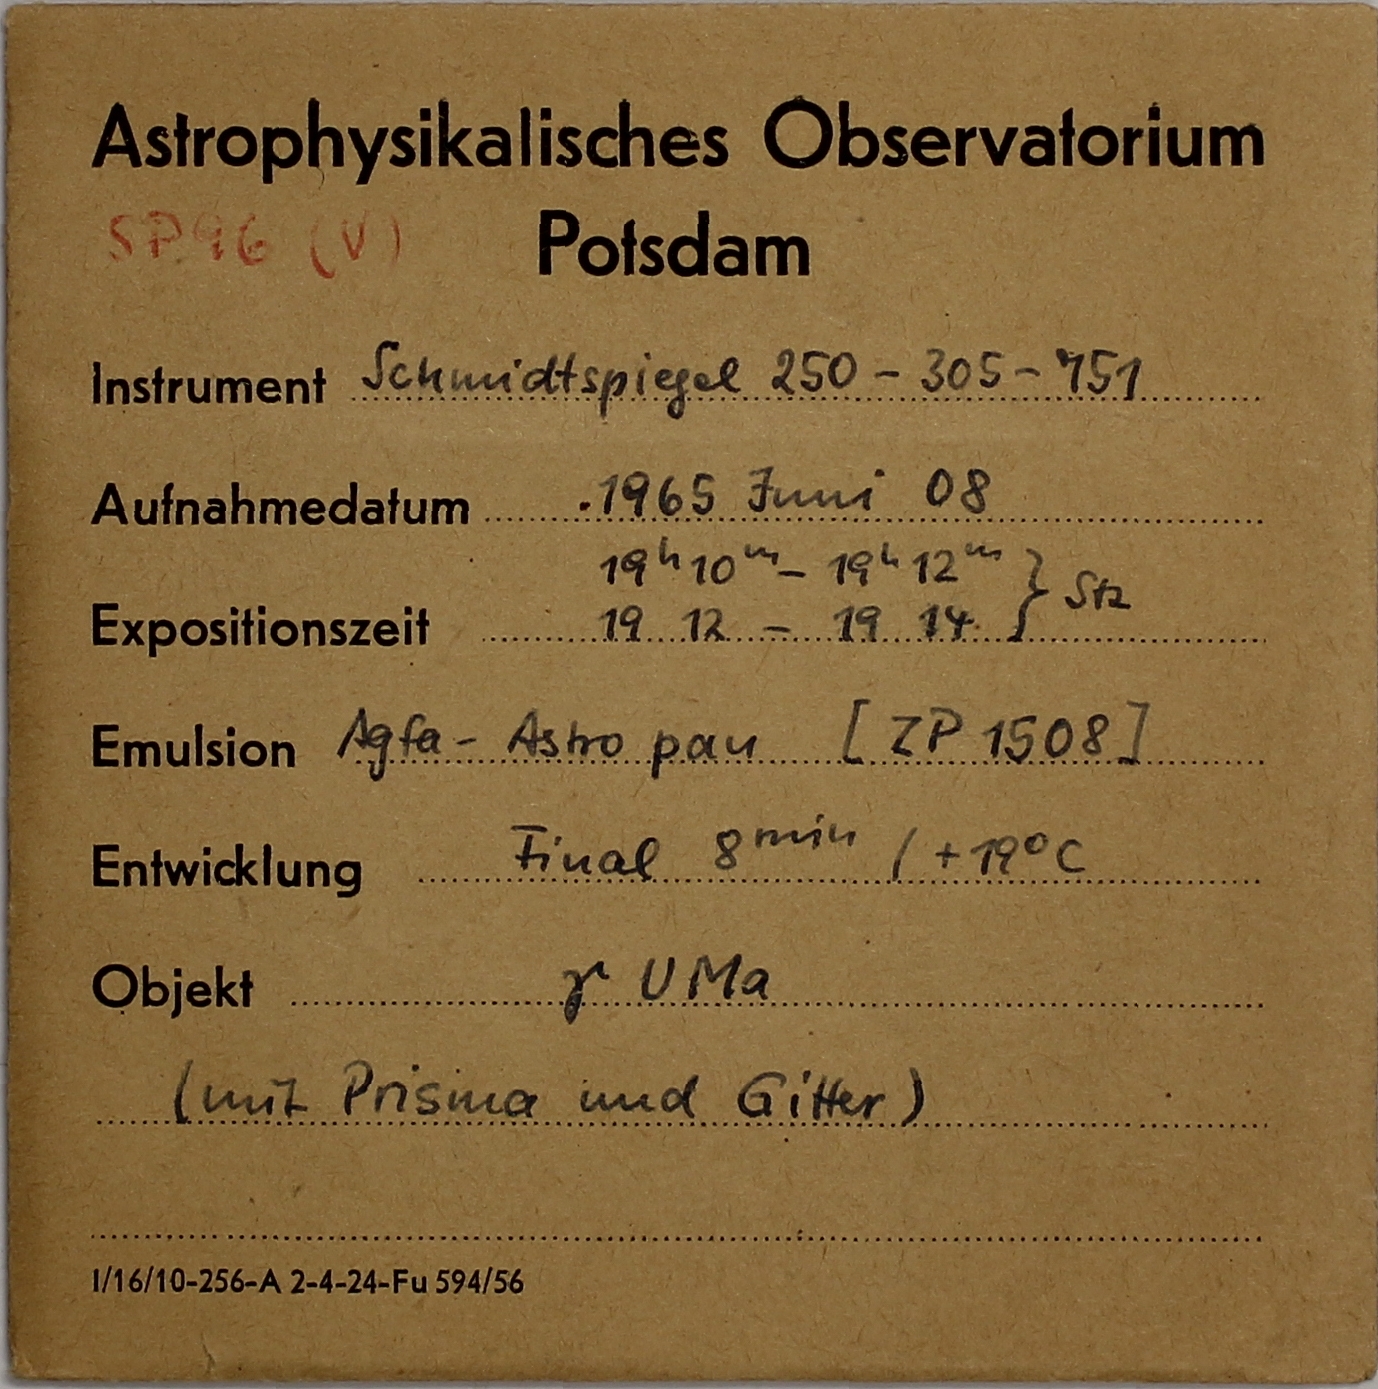 Astrophysikalisches Observatorium
Potsdam
SP96 (V)
Instrument Schmidtspiegel 250 - 305 - 751
Aufnahmedatum 1965 Juni 08
19ʰ10ᵐ - 19ʰ12ᵐ
Expositionszeit 19 12 - 19 14 } Stz
Emulsion Agfa - Astro pan [ZP 1508]
Entwicklung Final 8ᵐⁱⁿ / +19°C
Objekt γ UMa
(mit Prisma und Gitter)
I/16/10-256-A 2-4-24-Fu 594/56